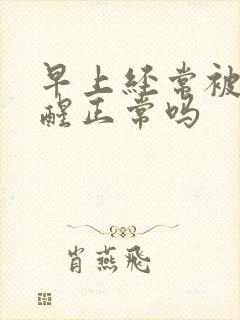 早上经常被
醒正常吗
肖燕飞